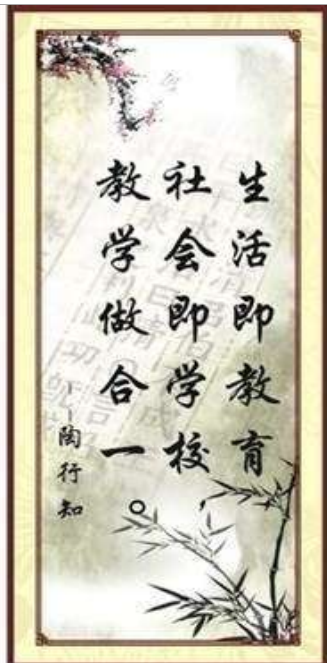 生活即教育，
社会即学校，
教学做合一。
——陶行知